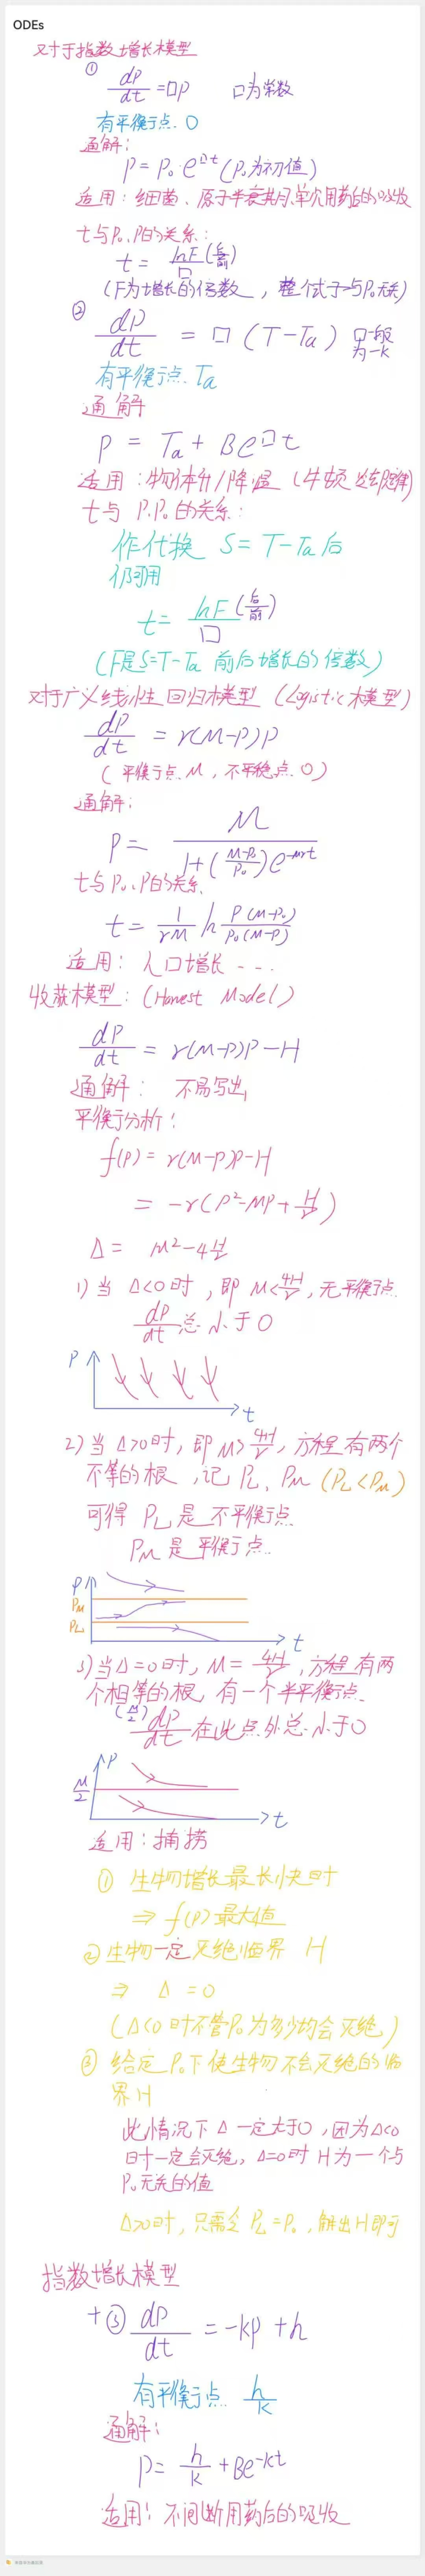 ODEs
对于指数增长模型
① dP/dt = □P □为常数
有平衡点 0
通解:
P = P₀·e^□t (P₀为初值)
适用:细菌、原子半衰期、单次用药后的吸收
t与P₀、P的关系:
t = lnF(后/前)/□
(F为增长的倍数,整个式子与P₀无关)
② dP/dt = □(T-Ta) □一般为-k
有平衡点 Ta
通解
P = Ta + Be^□t
适用:物体升/降温(牛顿冷却定律)
t与P.P₀的关系:
作代换 S = T-Ta 后
仍可用
t = lnF(后/前)/□
(F是S=T-Ta 前后增长的倍数)
对于广义线性回归模型(Logistic模型)
dP/dt = r(M-P)P
(平衡点 M,不平稳点 0)
通解:
P = M/(1+((M-P₀)/P₀)e^-Mrt)
t与P₀、P的关系、
t = 1/(rM) ln P(M-P₀)/(P₀(M-P))
适用:人口增长 ---
收获模型:(Harvest Model)
dP/dt = r(M-P)P-H
通解: 不易写出
平衡分析:
f(P) = r(M-P)P-H
= -r(P²-MP+H/r)
Δ = M²-4H/r
1) 当 Δ<0时,即 M<4H/r,无平衡点.
dP/dt总小于0
P
t
2) 当 Δ>0时,即 M>4H/r,方程有两个
不等的根,记 PL、PM (PL<PM)
可得 PL是不平衡点
PM是平衡点.
P
PM
PL
t
3) 当Δ=0时,M = 4H/r,方程有两
个相等的根,有一个半平衡点.
(M/2) dP/dt 在此点外总小于0
P
M/2
t
适用:捕捞
① 生物增长最长快时
⇒ f(P)最大值
② 生物一定灭绝临界 H
⇒ Δ = 0
(Δ<0时不管P₀为多少均会灭绝)
③ 给定P₀下使生物不会灭绝的临
界H
此情况下Δ一定大于0,因为Δ<0
时一定会灭绝,Δ=0时 H为一个与
P₀无关的值
Δ>0时,只需令 PL=P₀,解出H即可
指数增长模型
+③ dP/dt = -kP+h
有平衡点 h/k
通解:
P = h/k + Be^-kt
适用:不间断用药后的吸收